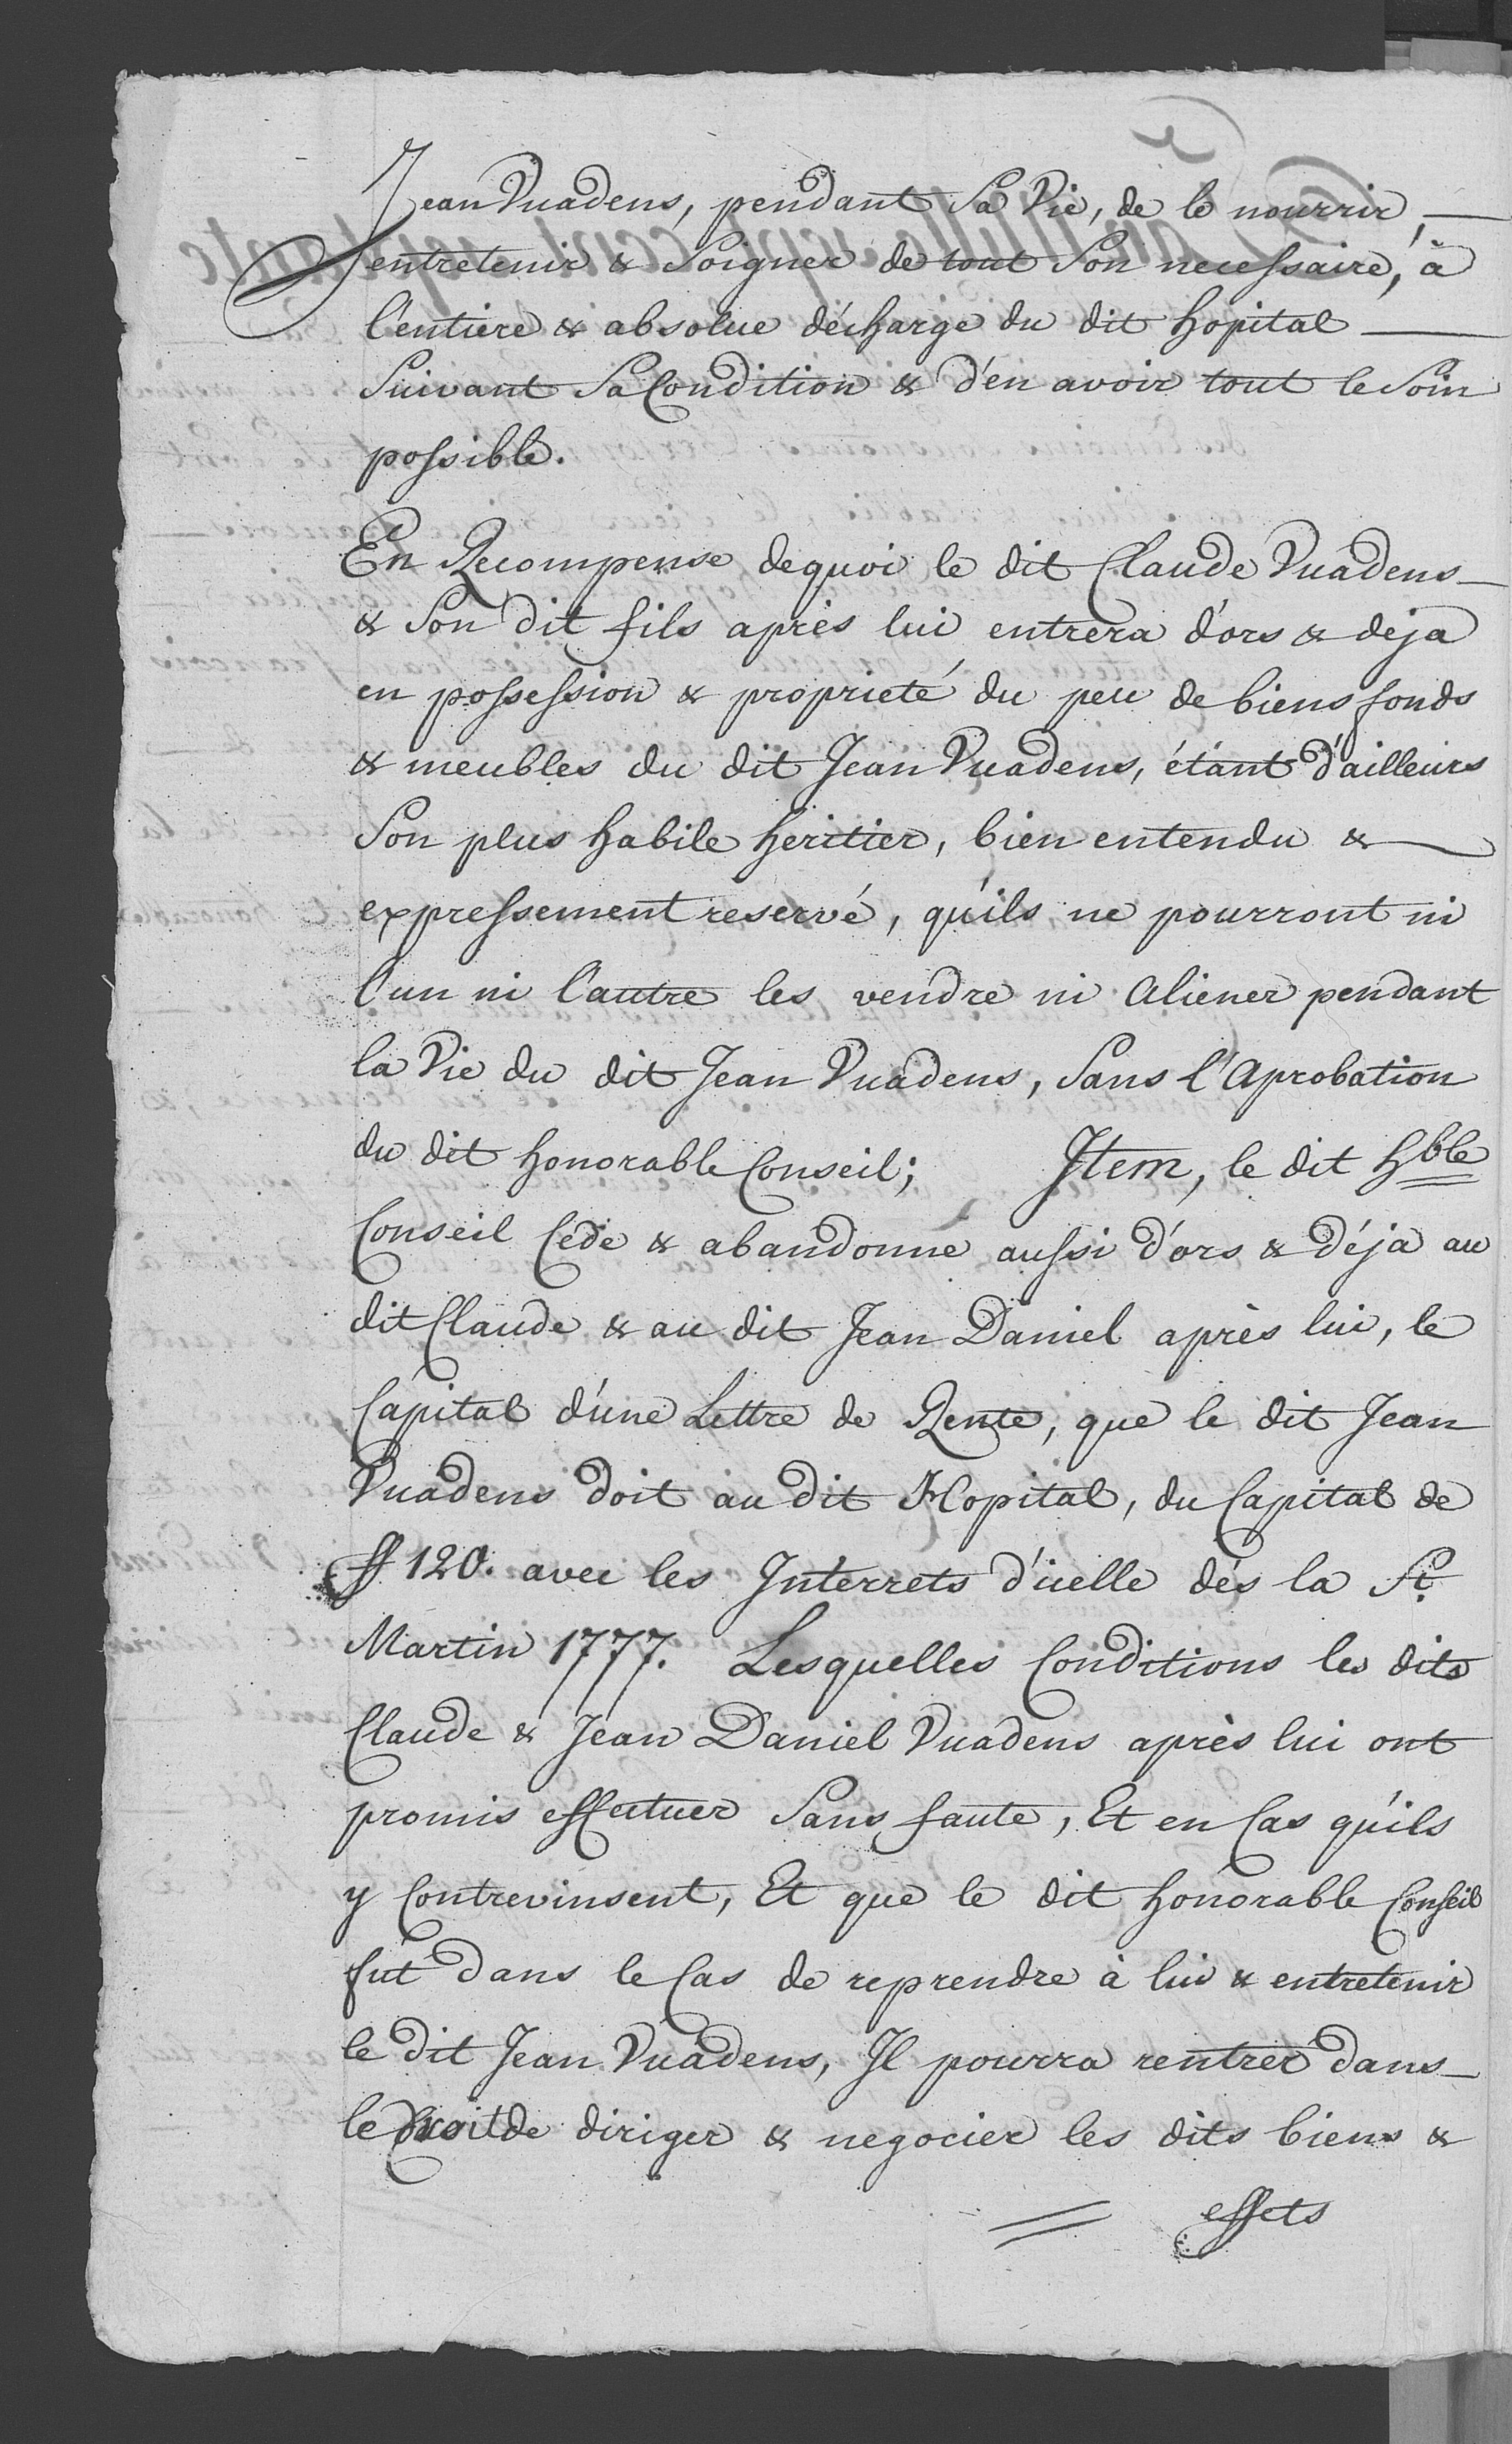 Jean Vuadens, pendant Sa Vie, de le nourrir,
entretenir & Soigner de tout Son necessaire, à
l'entiere & absolue décharge du dit hopital
Suivant Sa Condition & d'en avoir tout le Soin
possible.
En Recompense dequoi le dit Claude Vuadens
& Son dit fils après lui entrera d'ors & deja
en possession & proprieté du peu de biens fonds
& meubles du dit Jean Vuadens, étant d'ailleurs
Son plus habile heritier, bien entendu &
expressement reservé, qu'ils ne pourront ni
l'un ni l'autre les vendre ni aliener pendant
la Vie du dit Jean Vuadens, Sans l'Aprobation
du dit honorable Conseil; Item, le dit hble
Conseil Cede & abandonne aussi d'ors & déja au
dit Claude & au dit Jean Daniel après lui, le
Capital d'une Lettre de Rente, que le dit Jean
Vuadens doit au dit Hopital, du Capital de
ff 120. avec les Interrets d'icelle dés la St.
Martin 1777. Lesquelles Conditions les dits
Claude & Jean Daniel Vuadens après lui ont
promis effectuer Sans faute, Et en Cas qu'ils
y Contrevinsent, Et que le dit honorable Conseil
fut dans le Cas de reprendre à lui & entretenir
le dit Jean Vuadens, Il pourra rentrer dans
le Droit de diriger & negocier les dits biens &
effets